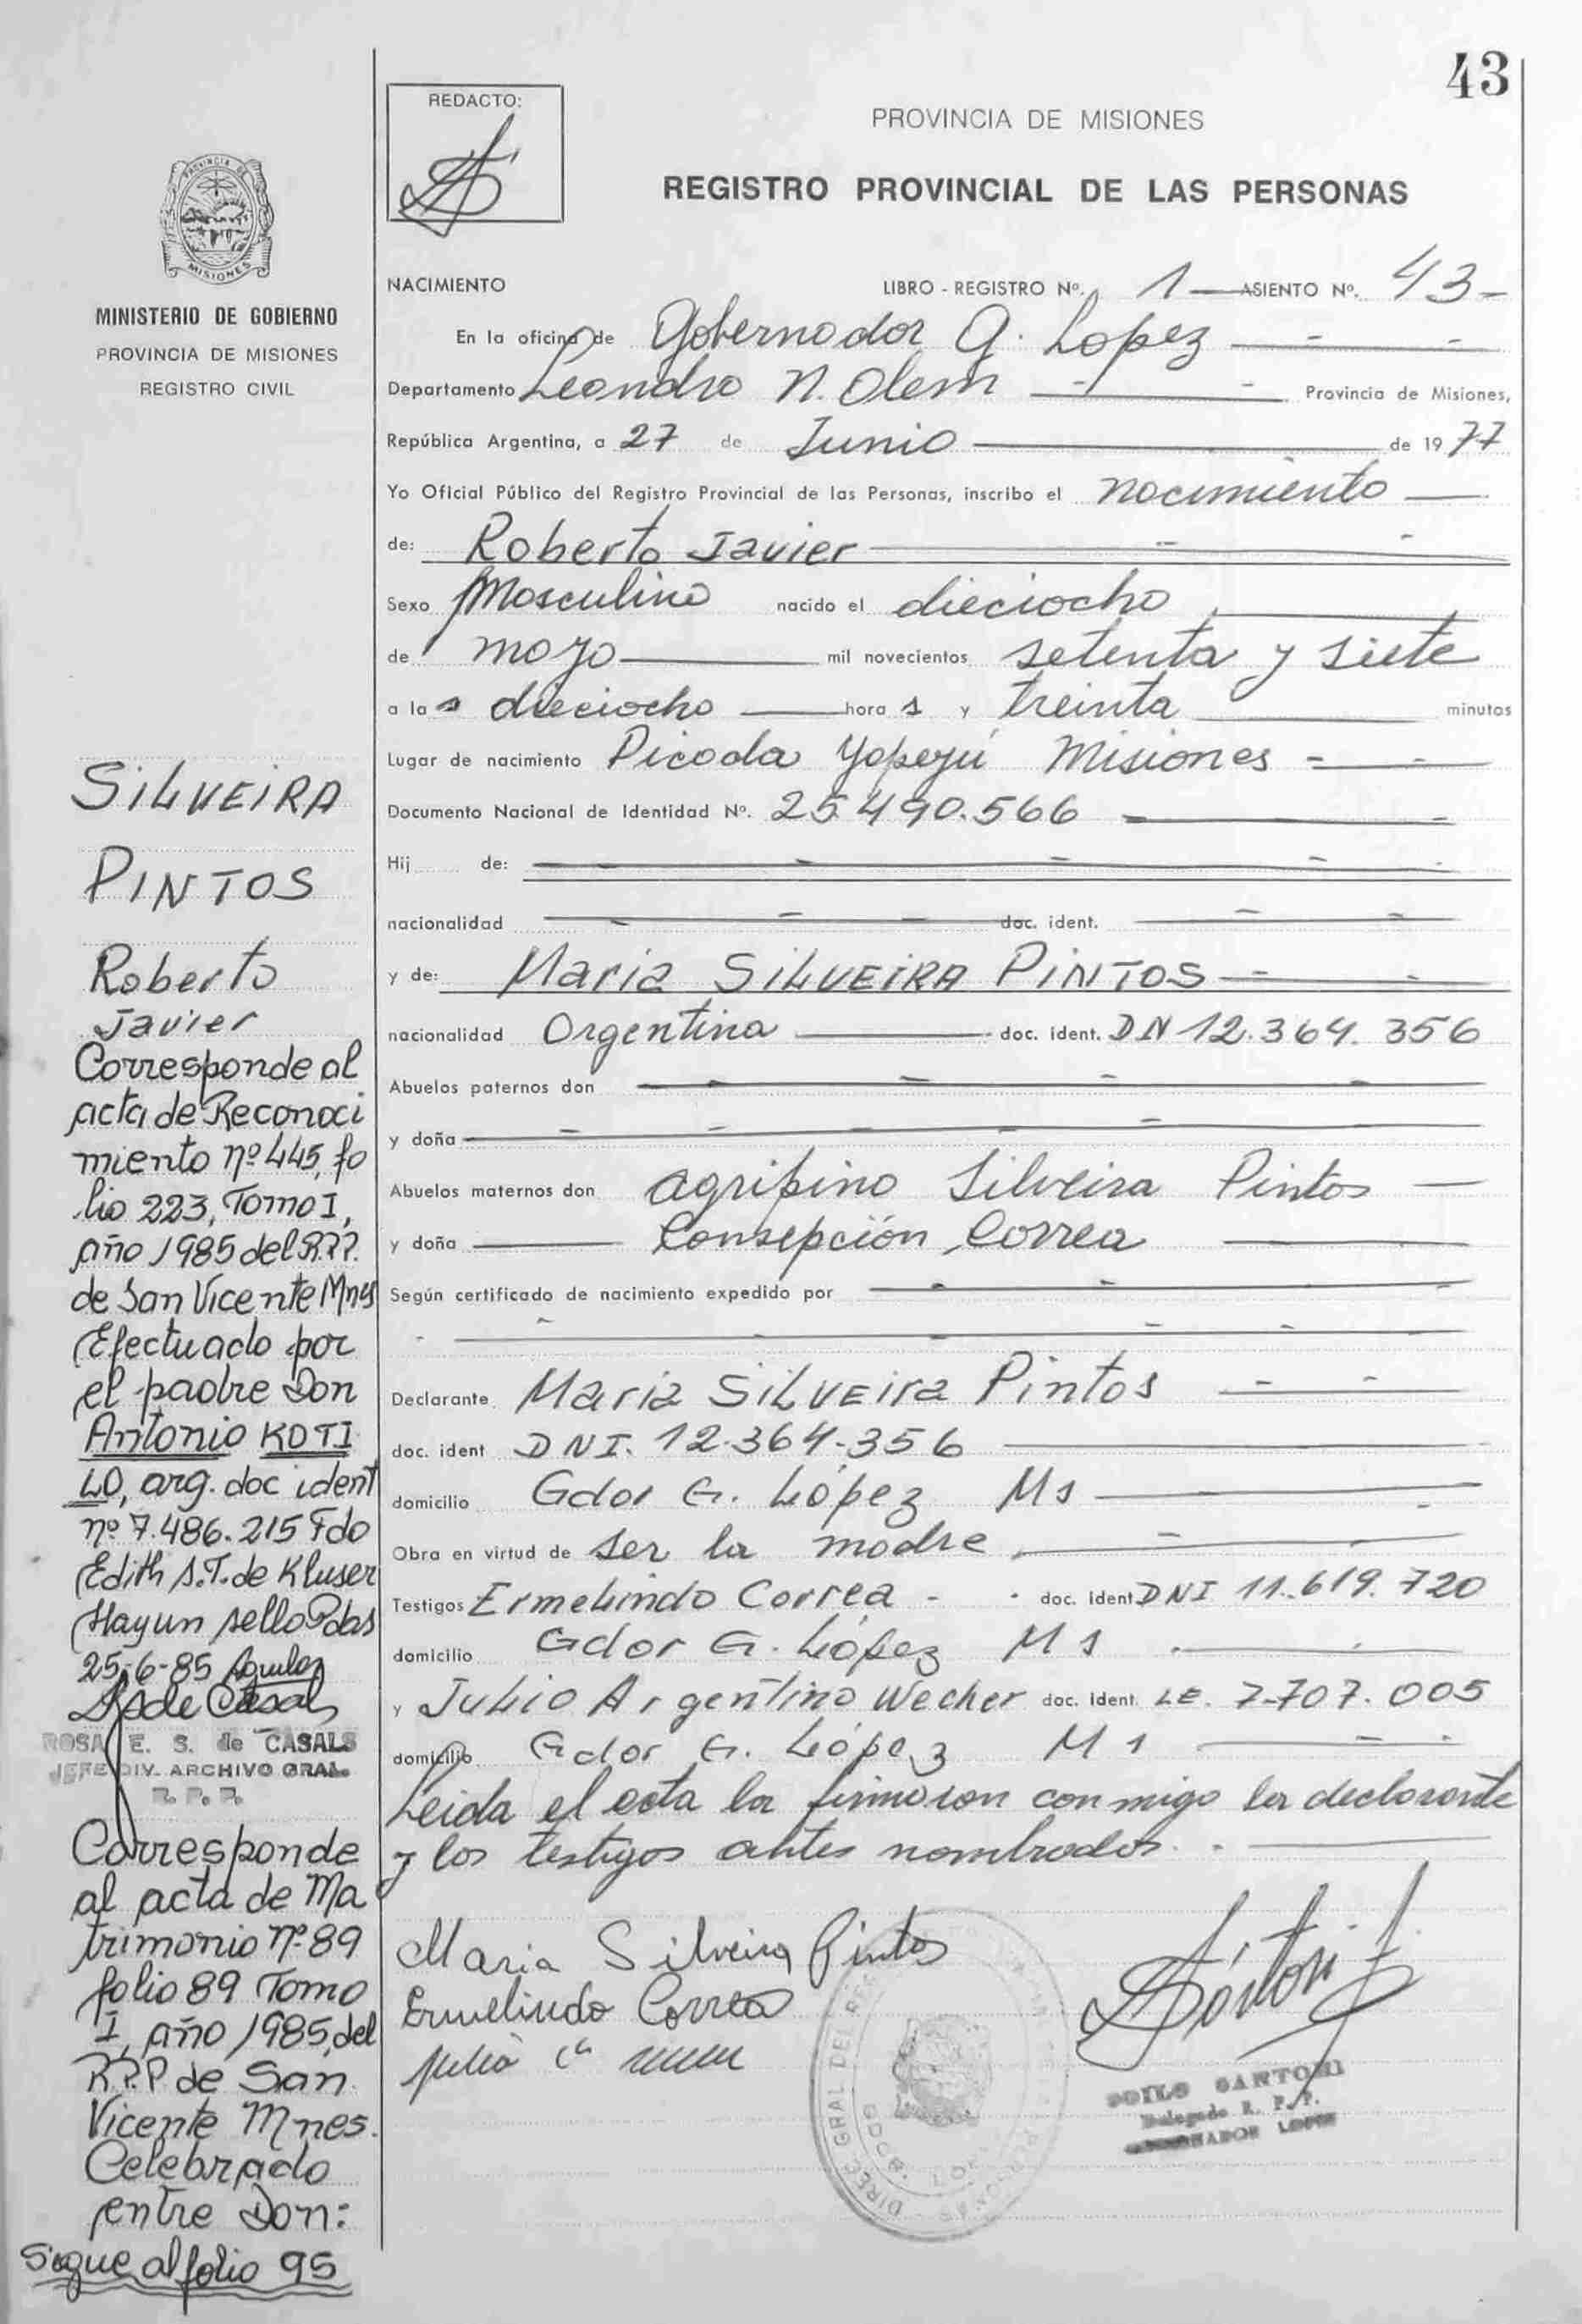 43
REDACTO:
PROVINCIA DE MISIONES
REGISTRO PROVINCIAL DE LAS PERSONAS
PROVINCIA DE
MISIONES
MINISTERIO DE GOBIERNO
PROVINCIA DE MISIONES
REGISTRO CIVIL
NACIMIENTO LIBRO - REGISTRO Nº. 1 ASIENTO Nº. 43
En la oficina de Gobernador G. Lopez
Departamento Leandro N. Alem Provincia de Misiones,
República Argentina, a 27 de Junio de 1977
Yo Oficial Público del Registro Provincial de las Personas, inscribo el nacimiento
de: Roberto Javier
Sexo Masculino nacido el dieciocho
de mayo mil novecientos setenta y siete
a las dieciocho horas y treinta minutos
Lugar de nacimiento Picada Yapeyú Misiones
Documento Nacional de Identidad Nº. 25.490.566
Hij de:
nacionalidad doc. ident.
y de: Maria SILVEIRA PINTOS
nacionalidad Argentina doc. ident. DN 12.364.356
Abuelos paternos don
y doña
Abuelos maternos don Agripino Silveira Pintos
y doña Consepción Correa
Según certificado de nacimiento expedido por
Declarante Maria SILVEIra Pintos
doc. ident DNI. 12.364.356
domicilio Gdor G. López Ms
Obra en virtud de ser la madre
Testigos Ermelindo Correa doc. ident DNI 11.619.720
domicilio Gdor G. López Ms
y Julio Argentino Wecher doc. ident. LE. 7.707.005
domicilio Gdor G. López Ms
Leida el acta la firmaron conmigo la declarante
y los testigos antes nombrados.
Maria Silveira Pintos
Ermelindo Correa
Julio
ZOILO SARTORI
Delegado R. P. P.
GOBERNADOR LOPEZ
SILVEIRA
PINTOS
Roberto
Javier
Corresponde al
acta de Reconoci
miento nº 445, fo
lio 223, Tomo I,
año 1985 del R.P.P.
de San Vicente Mnes
Efectuado por
el padre Don
Antonio KOTI
LO, arg. doc ident
nº 7.486.215 Fdo
Edith A.T. de Kluser
Hay un sello Pdas
25-6-85 Aguilar
ROSA E. S. de CASALS
JEFE DIV. ARCHIVO GRAL.
R. P. P.
Corresponde
al acta de Ma
trimonio nº 89
folio 89 Tomo
I, año 1985, del
R.P.P de San
Vicente Mnes.
Celebrado
entre Don:
Sigue al folio 95